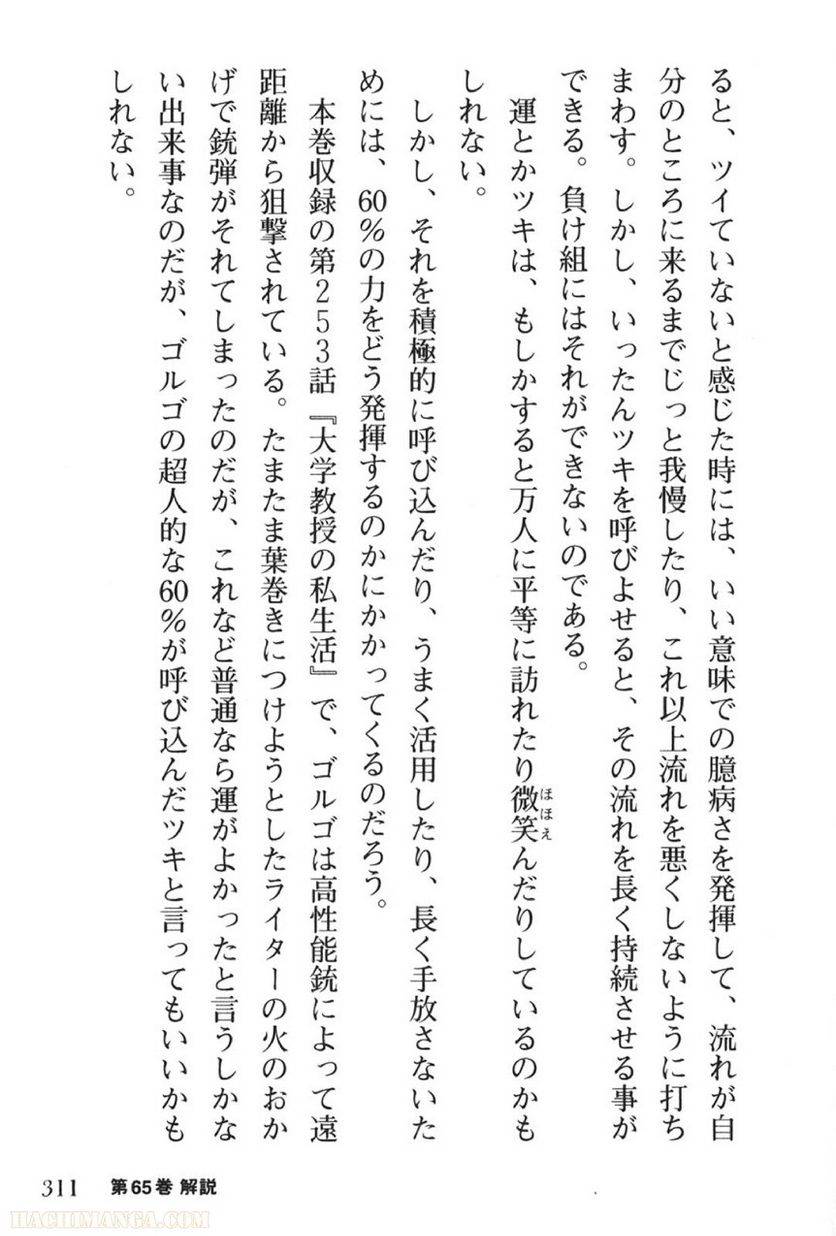 ると、ツイていないと感じた時には、いい意味での臆病さを発揮して、流れが自
分のところに来るまでじっと我慢したり、これ以上流れを悪くしないように打ち
まわす。しかし、いったんツキを呼びよせると、その流れを長く持続させる事が
できる。負け組にはそれができないのである。
運とかツキは、もしかすると万人に平等に訪れたり微笑んだりしているのかも
ほほえ
しれない。
しかし、それを積極的に呼び込んだり、うまく活用したり、長く手放さないた
めには、60％の力をどう発揮するのかにかかってくるのだろう。
本巻収録の第253話『大学教授の私生活』で、ゴルゴは高性能銃によって遠
距離から狙撃されている。たまたま葉巻きにつけようとしたライターの火のおか
げで銃弾がそれてしまったのだが、これなど普通なら運がよかったと言うしかな
い出来事なのだが、ゴルゴの超人的な60％が呼び込んだツキと言ってもいいかも
しれない。
311 第65巻 解説
HACHIMANGA.COM